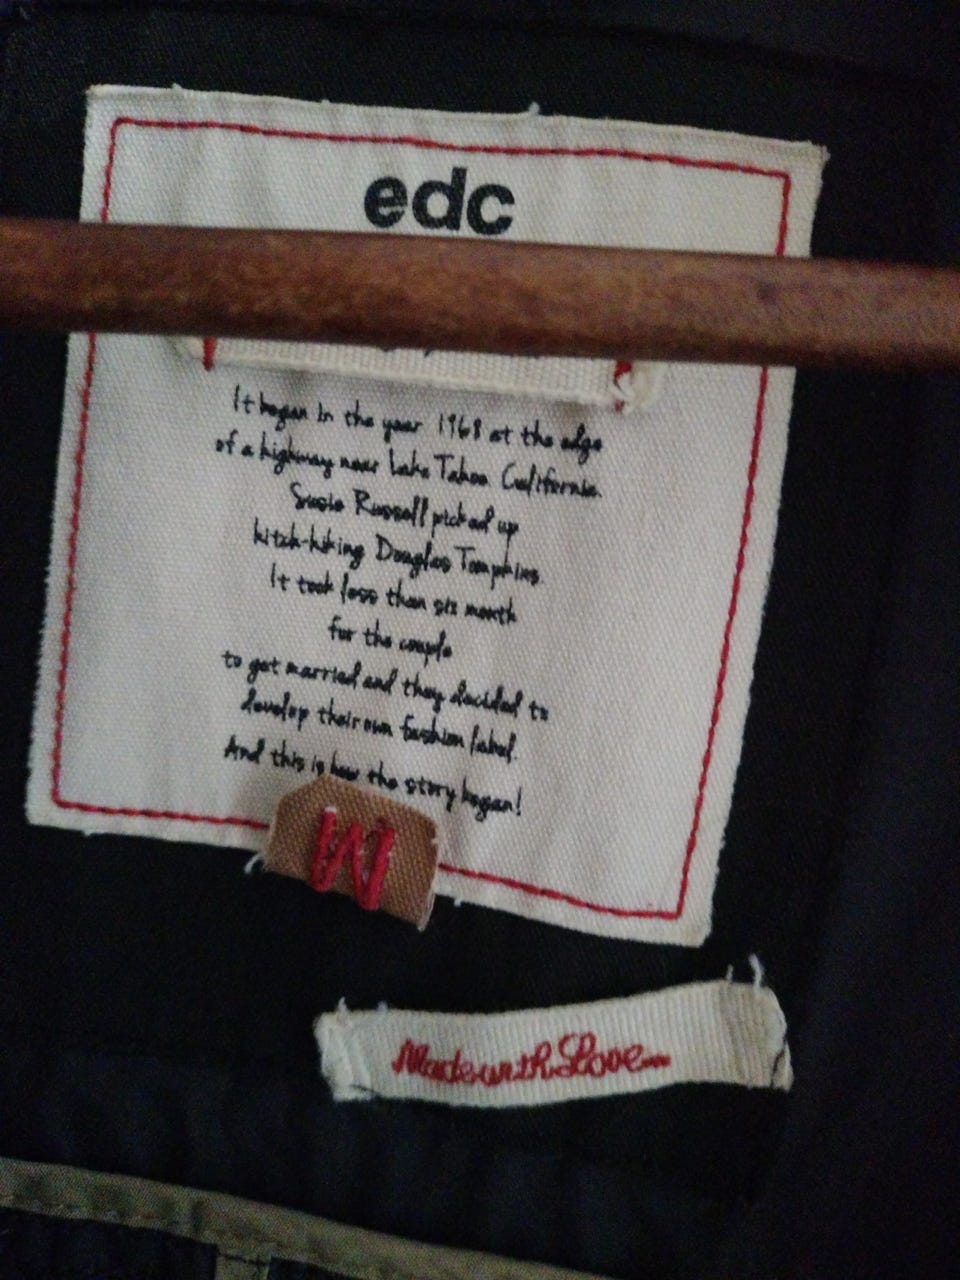 edc
It began in the year 1968 at the edge
of a highway near Lake Tahoe California.
Susie Russell picked up
hitch-hiking Douglas Tompkins.
It took less than six month
for the couple
to get married and they decided to
develop their own fashion label.
And this is how the story began!
M
Made with Love...